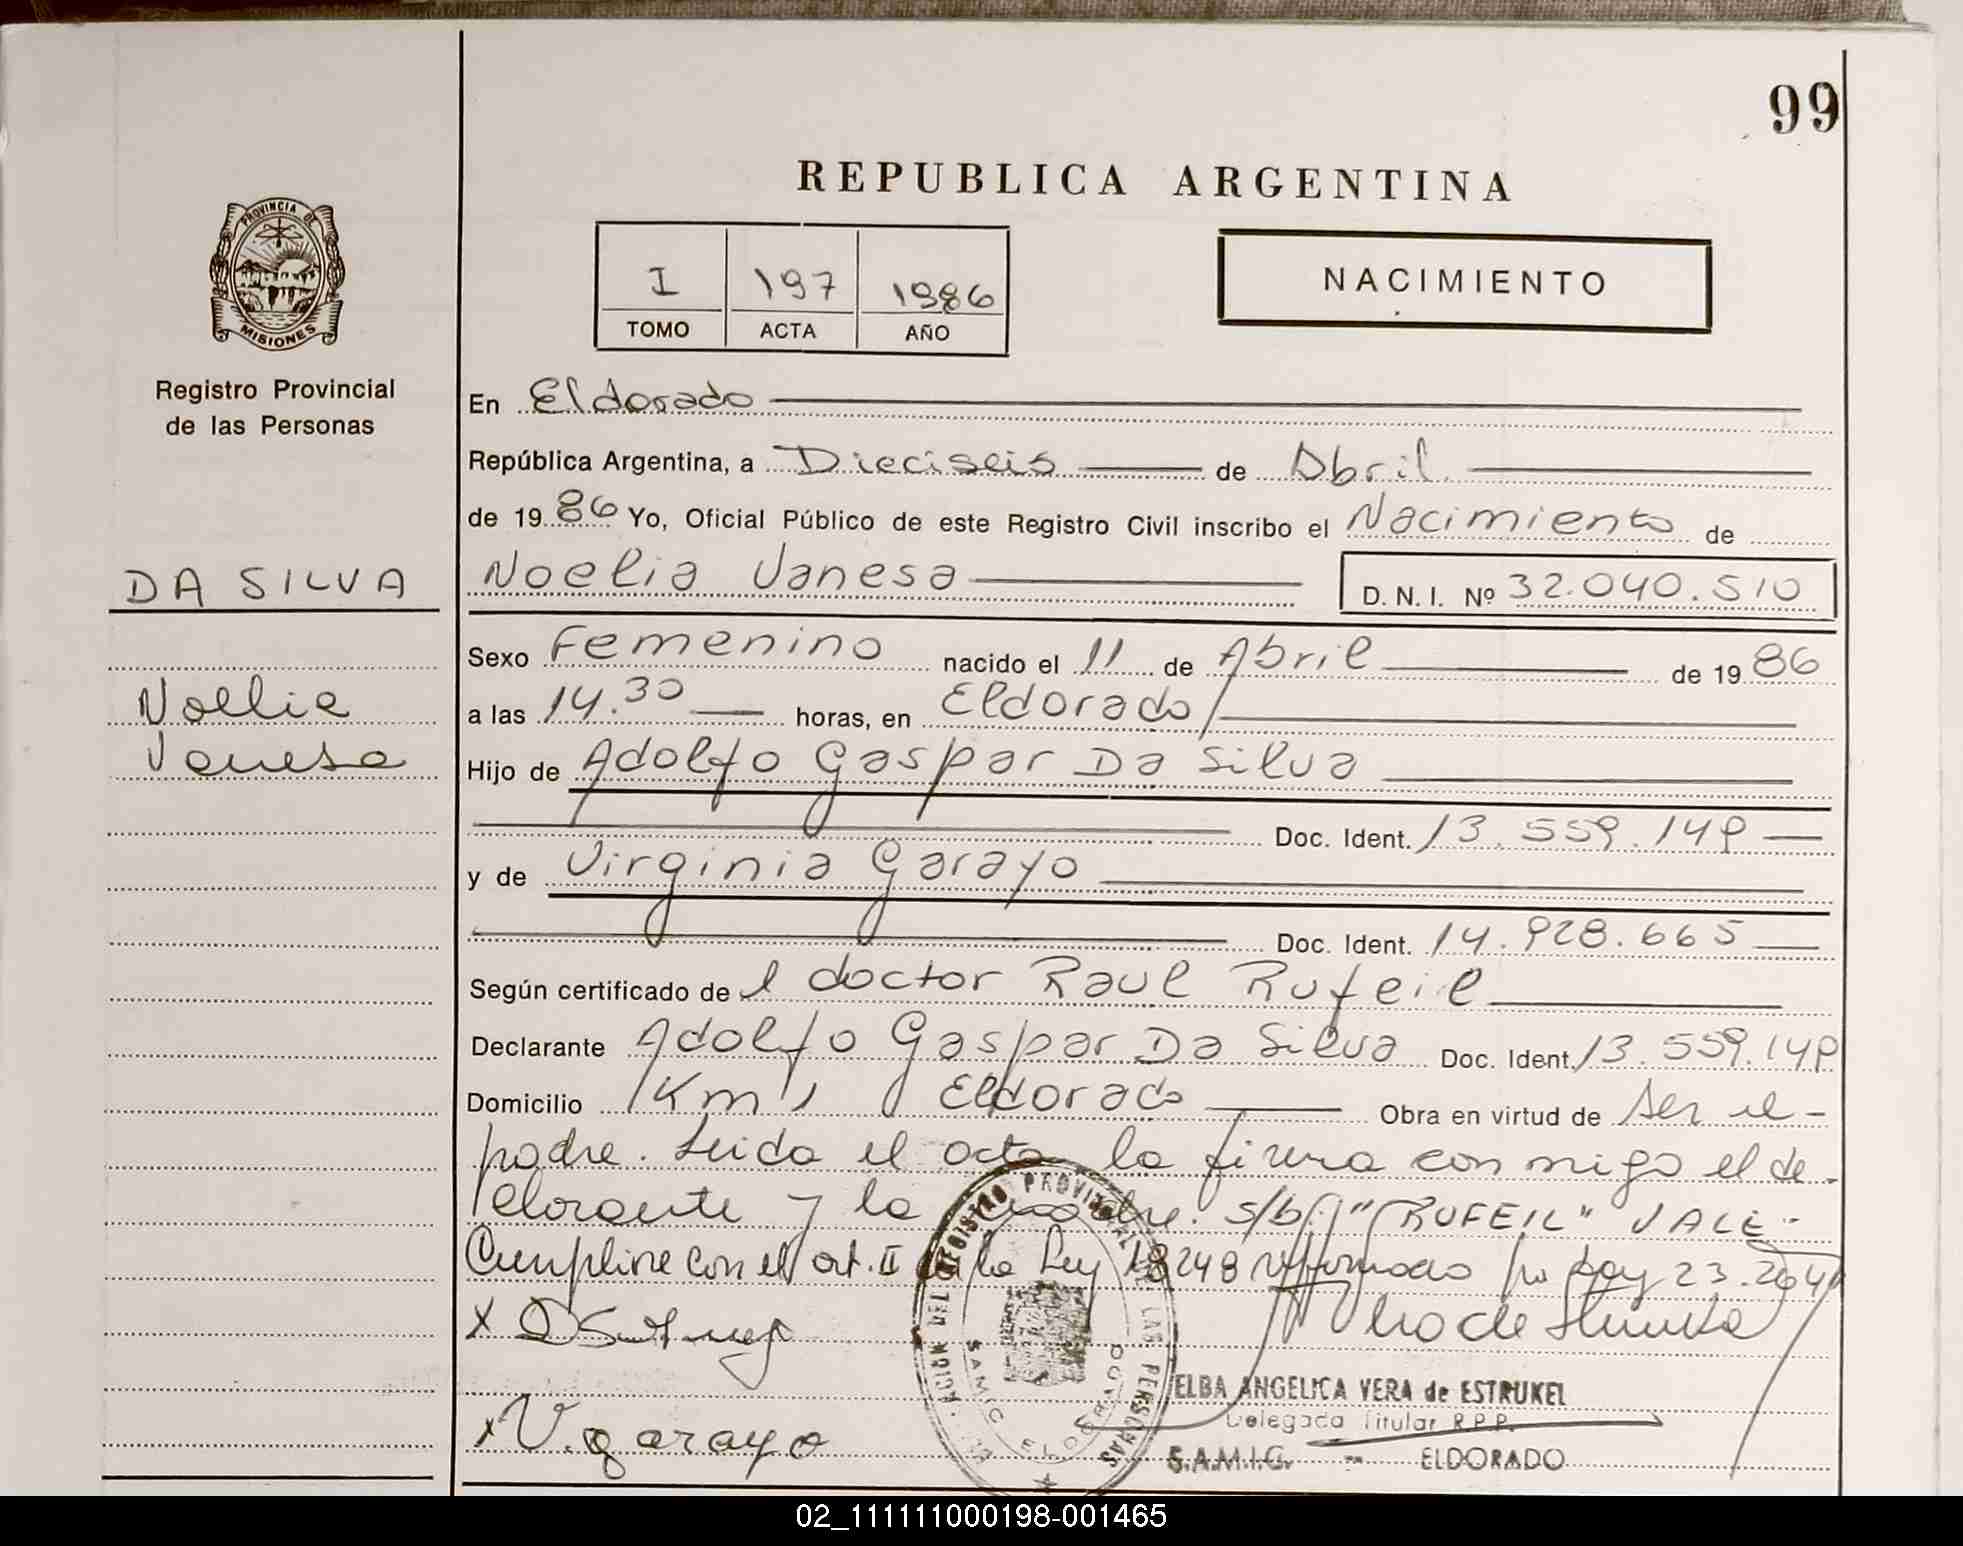 99
REPUBLICA ARGENTINA
PROVINCIA DE
MISIONES
I 197 1986
TOMO ACTA AÑO
NACIMIENTO
Registro Provincial
de las Personas
En Eldorado
República Argentina, a Dieciseis de Abril
de 1986 Yo, Oficial Público de este Registro Civil inscribo el Nacimiento de
DA SILVA
Noelia Vanesa D.N.I. Nº 32.040.510
Sexo Femenino nacido el 11 de Abril de 1986
Noelia
Vanesa
a las 14.30 horas, en Eldorado
Hijo de Adolfo Gaspar Da Silva
Doc. Ident. 13.559.149
y de Virginia Garayo
Doc. Ident. 14.928.665
Según certificado de l doctor Raul Rufeil
Declarante Adolfo Gaspar Da Silva Doc. Ident. 13.559.149
Domicilio Km 1 Eldorado Obra en virtud de ser el
padre. Leida el acta la firma conmigo el de
clarante y la madre. s/b: "RUFEIL" VALE-
Cumplire con el art. II de la Ley 18248 por Ley 23.264
X
ELBA ANGELICA VERA de ESTRUKEL
Delegada Titular R.P.P.
x V. garayo
S.A.M.I.C. - ELDORADO
REGISTRO PROVINCIAL DE LAS PERSONAS
SAMIC ELDORADO
02_111111000198-001465